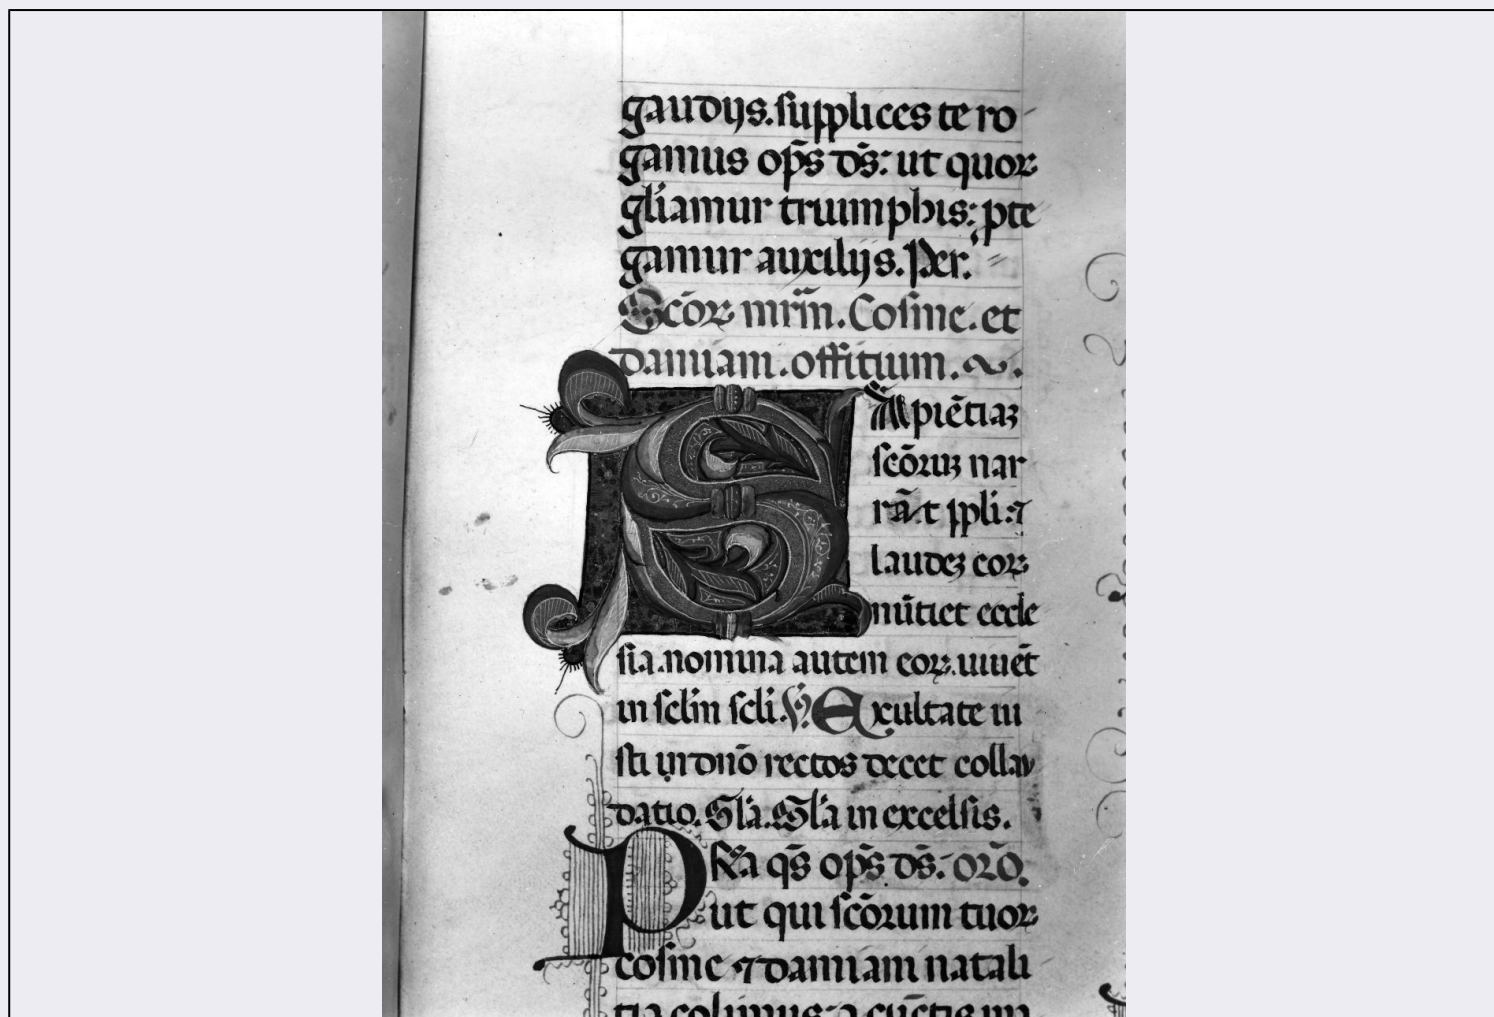 gaudijs. supplices te ro
gamus op̄s d̄s: ut quoꝝ
gl̄iamur triumphis: pte
gamur auxilijs. Per.
Sc̄oꝝ mr̄m. Cosme. et
damiani. offitium.
SApiētiaꝫ
sc̄oruꝫ nar
rāt ppli: ⁊
laudeꝫ eoꝝ
nūtiet eccle
sia. nomina autem eoꝝ. uiuēt
in sclm̄ scli. ℣. Exultate iu
sti in dn̄o rectos decet collau
datio. Gl̄a. Gl̄a in excelsis.
PRa q̄s op̄s d̄s. or̄o.
ut qui sc̄orum tuoꝝ
cosme ⁊ damiani natali
tia colimus: a cūctis im